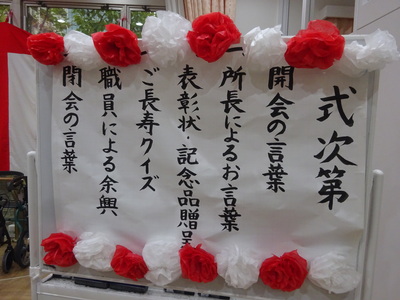 式次第
開会の言葉
一、所長によるお言葉
表彰状・記念品贈呈
一、ご長寿クイズ
職員による余興
一、閉会の言葉